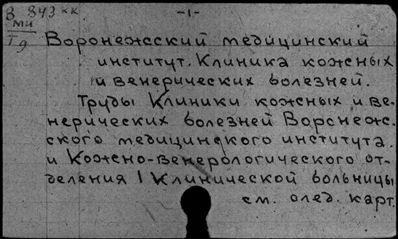 В 843 кк
-1-
ми
Iд
Воронежсский медицинский
институт. Клиника кожных
и венерических болезней.
Труды Клиники кожных и ве-
нерических болезней Воронеж.
ского медицинского института.
и Кожно-венерологического от-
деления 1 Клинической больницы
см. след. карт.